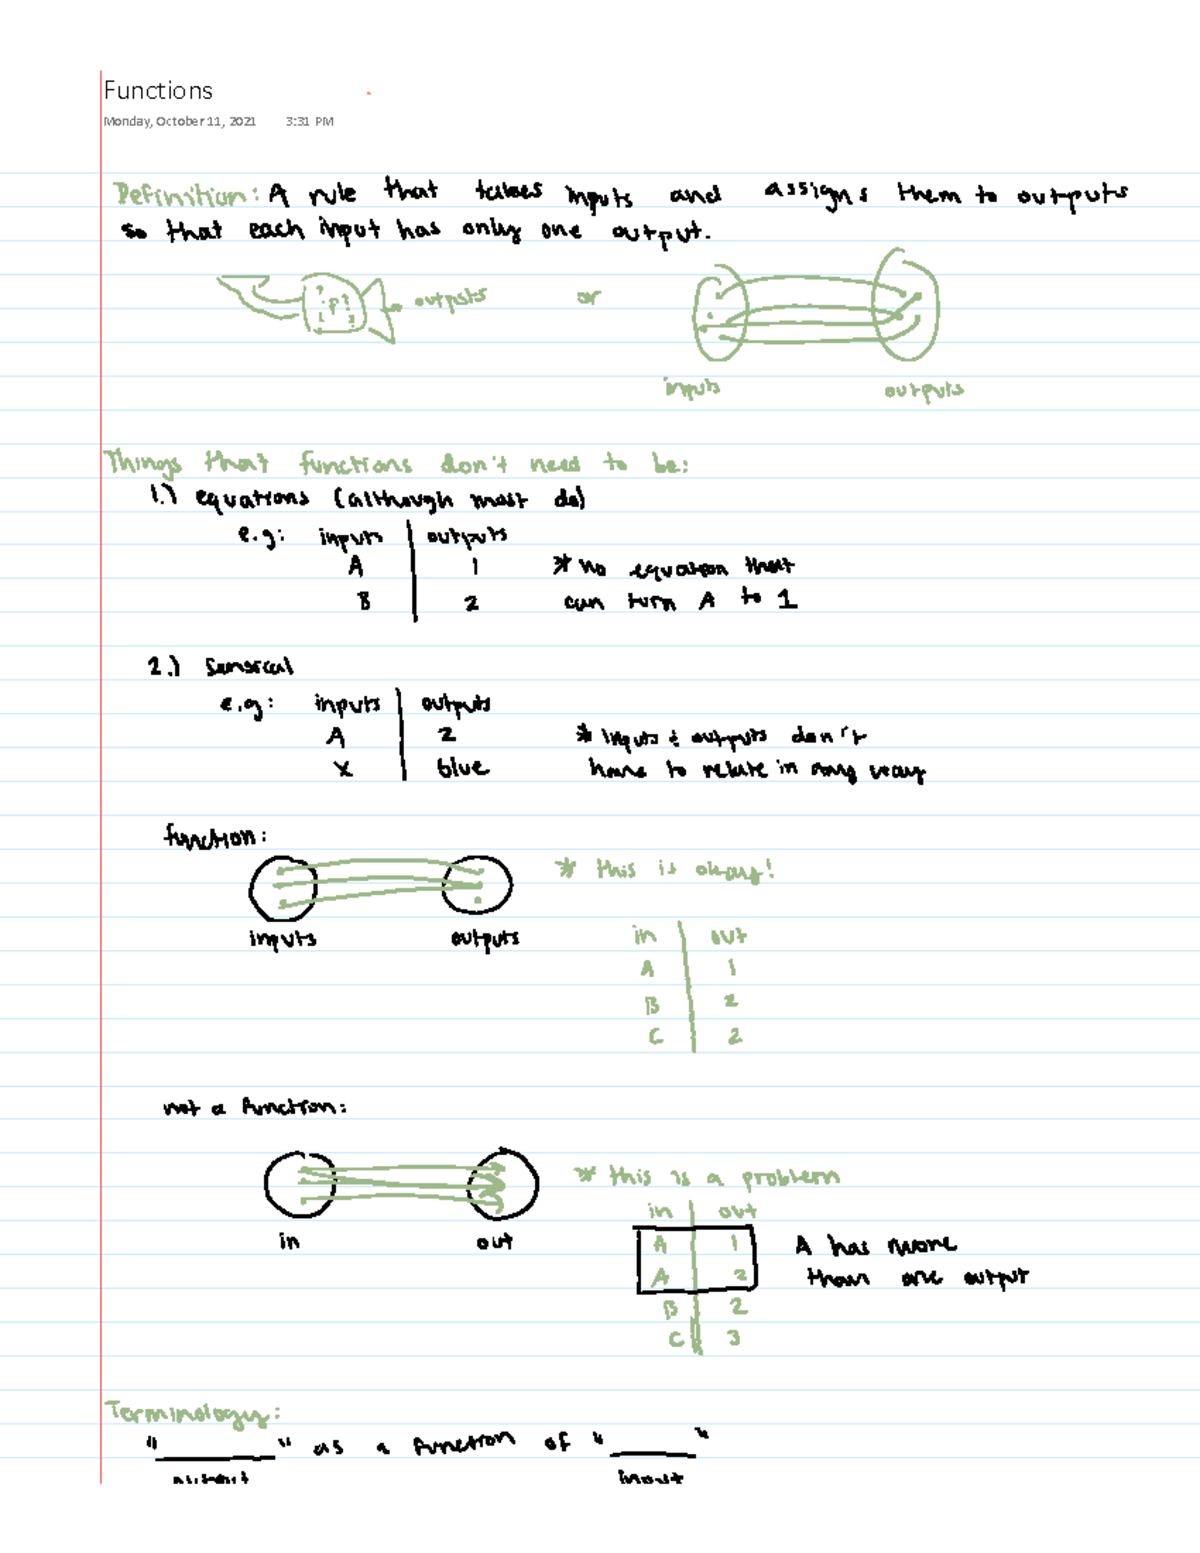 Functions
Monday, October 11, 2021 3:31 PM
Definition: A rule that takes inputs and assigns them to outputs
so that each input has only one output.
outputs or
inputs outputs
Things that functions don't need to be:
1.) equations (although most do)
e.g: inputs outputs
A 1 * no equation that
B 2 can turn A to 1
2.)
e.g: inputs outputs
A 2 * inputs & outputs don't
X blue have to relate in any way
function:
* this is okay!
inputs outputs
in out
A 1
B 2
C 2
not a function:
* this is a problem
in out
in out
A 1 A has more
A 2 than one output
B 2
C 3
Terminology:
"______" as a function of "______"
output input